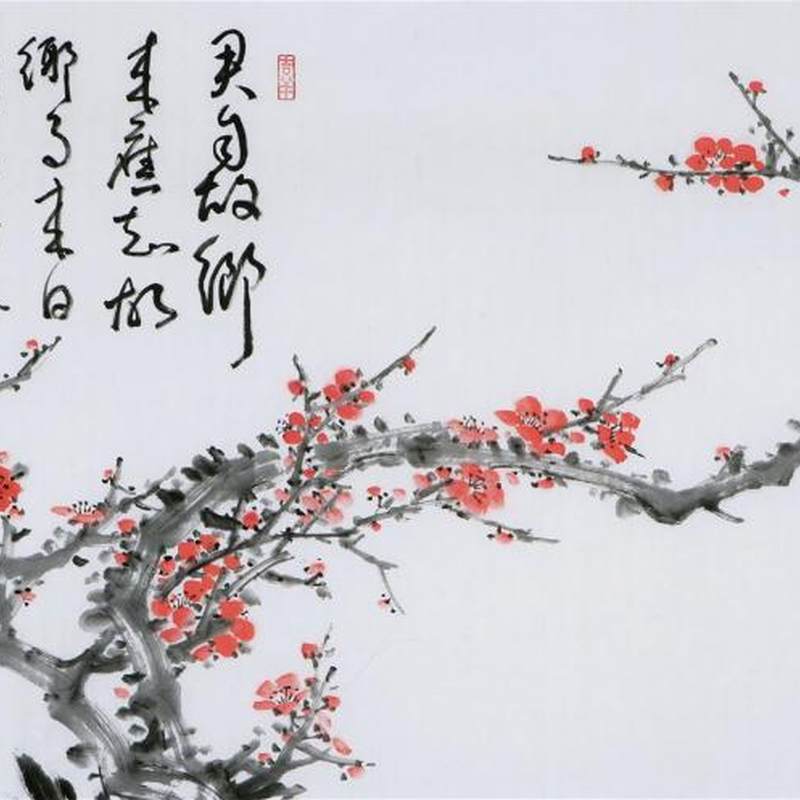 君自故鄉
來應知故
鄉事來日